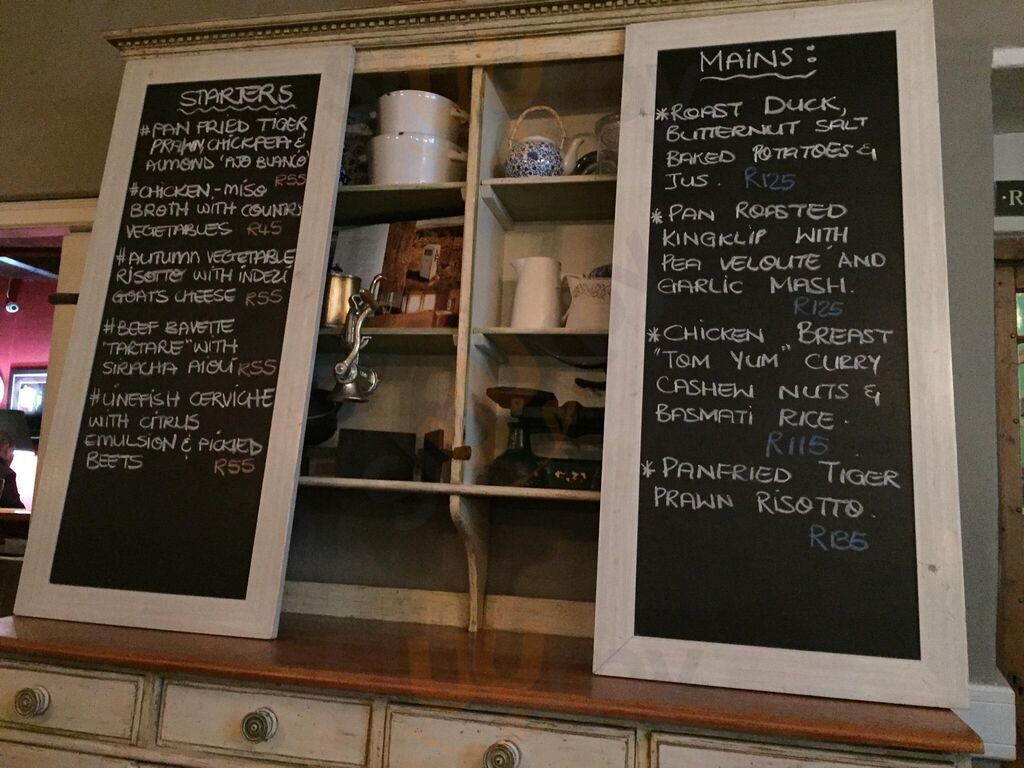 STARTERS
#PAN FRIED TIGER
PRAWN, CHICKPEA &
ALMOND 'AJO BLANCO'
R55
#CHICKEN-MISO
BROTH WITH COUNTRY
VEGETABLES R45
#AUTUMN VEGETABLE
RISOTTO WITH INDEZI
GOATS CHEESE R55
#BEEF BAVETTE
"TARTARE" WITH
SIRACHA AIOLI R55
#LINEFISH CERVICHE
WITH CITRUS
EMULSION & PICKLED
BEETS R55
MAINS:
*ROAST DUCK,
BUTTERNUT SALT
BAKED POTATOES &
JUS. R125
*PAN ROASTED
KINGKLIP WITH
PEA VELOUTE AND
GARLIC MASH.
R125
*CHICKEN BREAST
"TOM YUM" CURRY
CASHEW NUTS &
BASMATI RICE.
R115
*PANFRIED TIGER
PRAWN RISOTTO.
R135